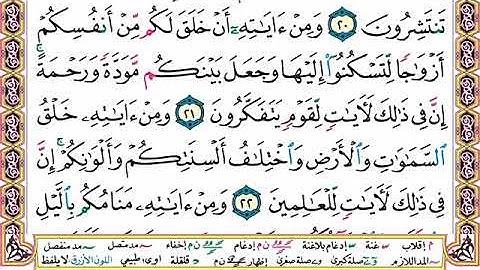 تَنتَشِرُونَ ٢٠ وَمِنْ ءَايَٰتِهِۦٓ أَنْ خَلَقَ لَكُم مِّنْ أَنفُسِكُمْ
أَزْوَٰجًا لِّتَسْكُنُوٓا۟ إِلَيْهَا وَجَعَلَ بَيْنَكُم مَّوَدَّةً وَرَحْمَةً ۚ
إِنَّ فِى ذَٰلِكَ لَءَايَٰتٍ لِّقَوْمٍ يَتَفَكَّرُونَ ٢١ وَمِنْ ءَايَٰتِهِۦ خَلْقُ
السَّمَٰوَٰتِ وَالْأَرْضِ وَاخْتِلَٰفُ أَلْسِنَتِكُمْ وَأَلْوَٰنِكُمْ ۚ إِنَّ
فِى ذَٰلِكَ لَءَايَٰتٍ لِّلْعَٰلِمِينَ ٢٢ وَمِنْ ءَايَٰتِهِۦ مَنَامُكُم بِالَّيْلِ
إقلاب غنة إدغام بلاغنة إدغام إخفاء مد متصل مد منفصل
المد اللازم صلة كبرى وصلة صغرى إظهار قلقلة اوى طبيعي اللون الأزرق لا يلفظ